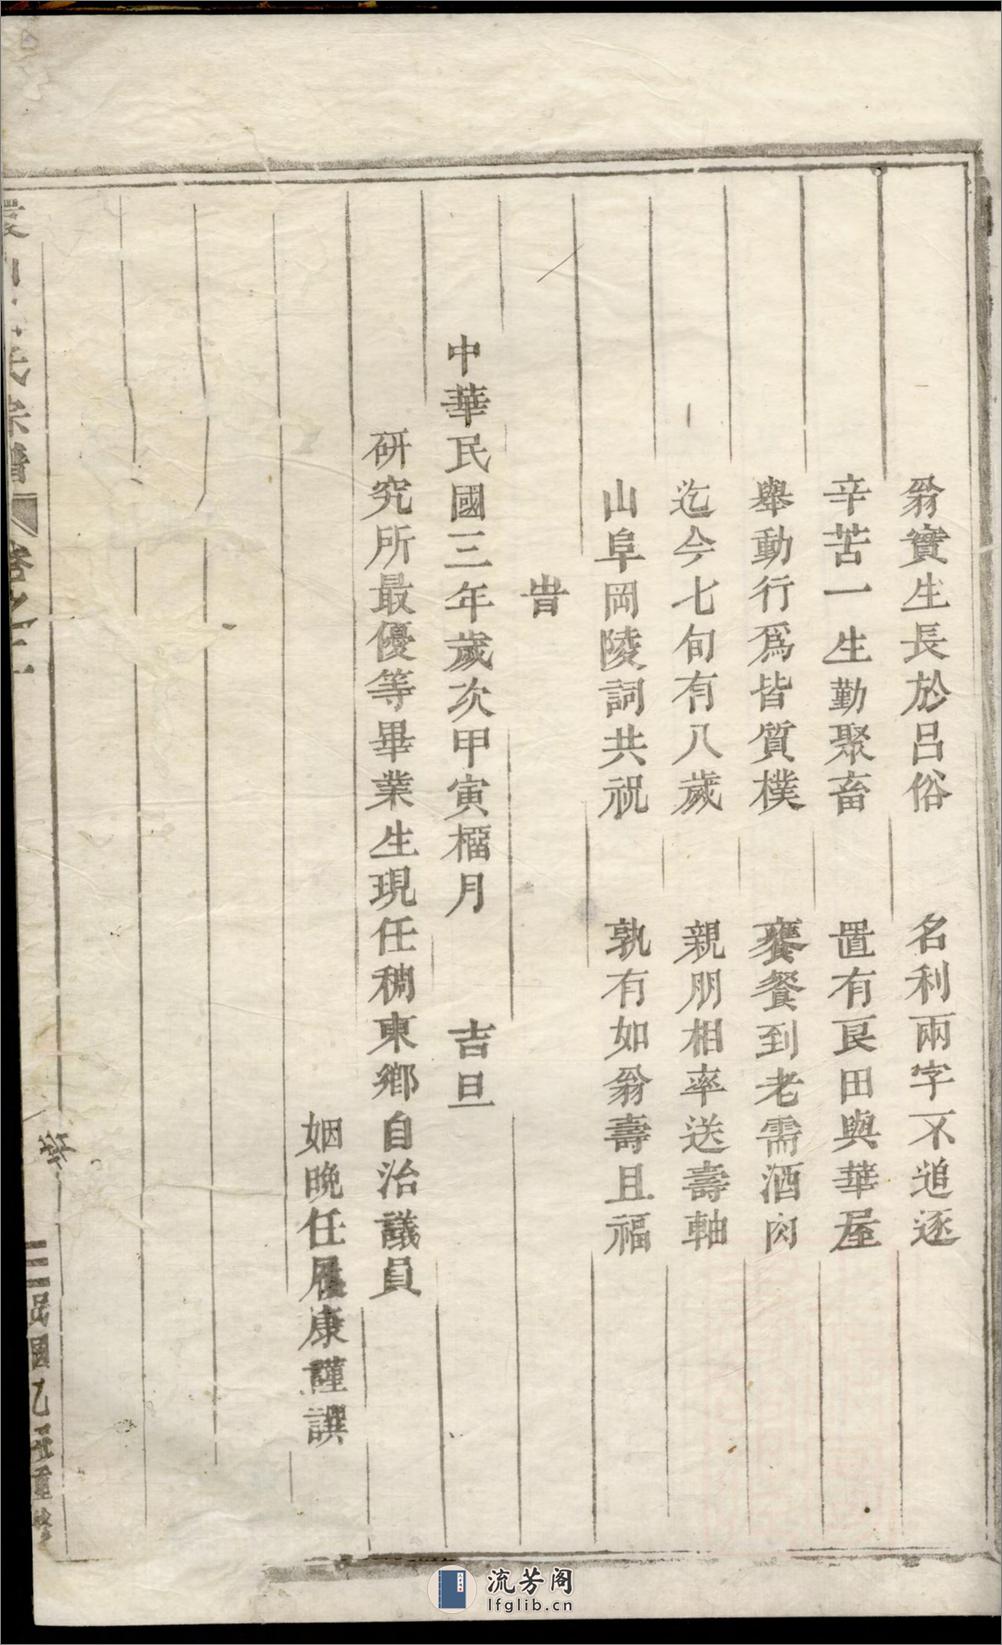 翁實生長於呂俗　名利兩字不追逐
辛苦一生勤聚畜　置有良田與華屋
舉動行爲皆質樸　饔餐到老需酒肉
迄今七旬有八歲　親朋相率送壽軸
山阜岡陵詞共祝　孰有如翁壽且福
旹
中華民國三年歲次甲寅榴月　吉旦
研究所最優等畢業生現任稠東鄉自治議員
姻晚任履康謹譔
氏宗譜　卷之二
民國乙重修
流芳阁
lfglib.cn